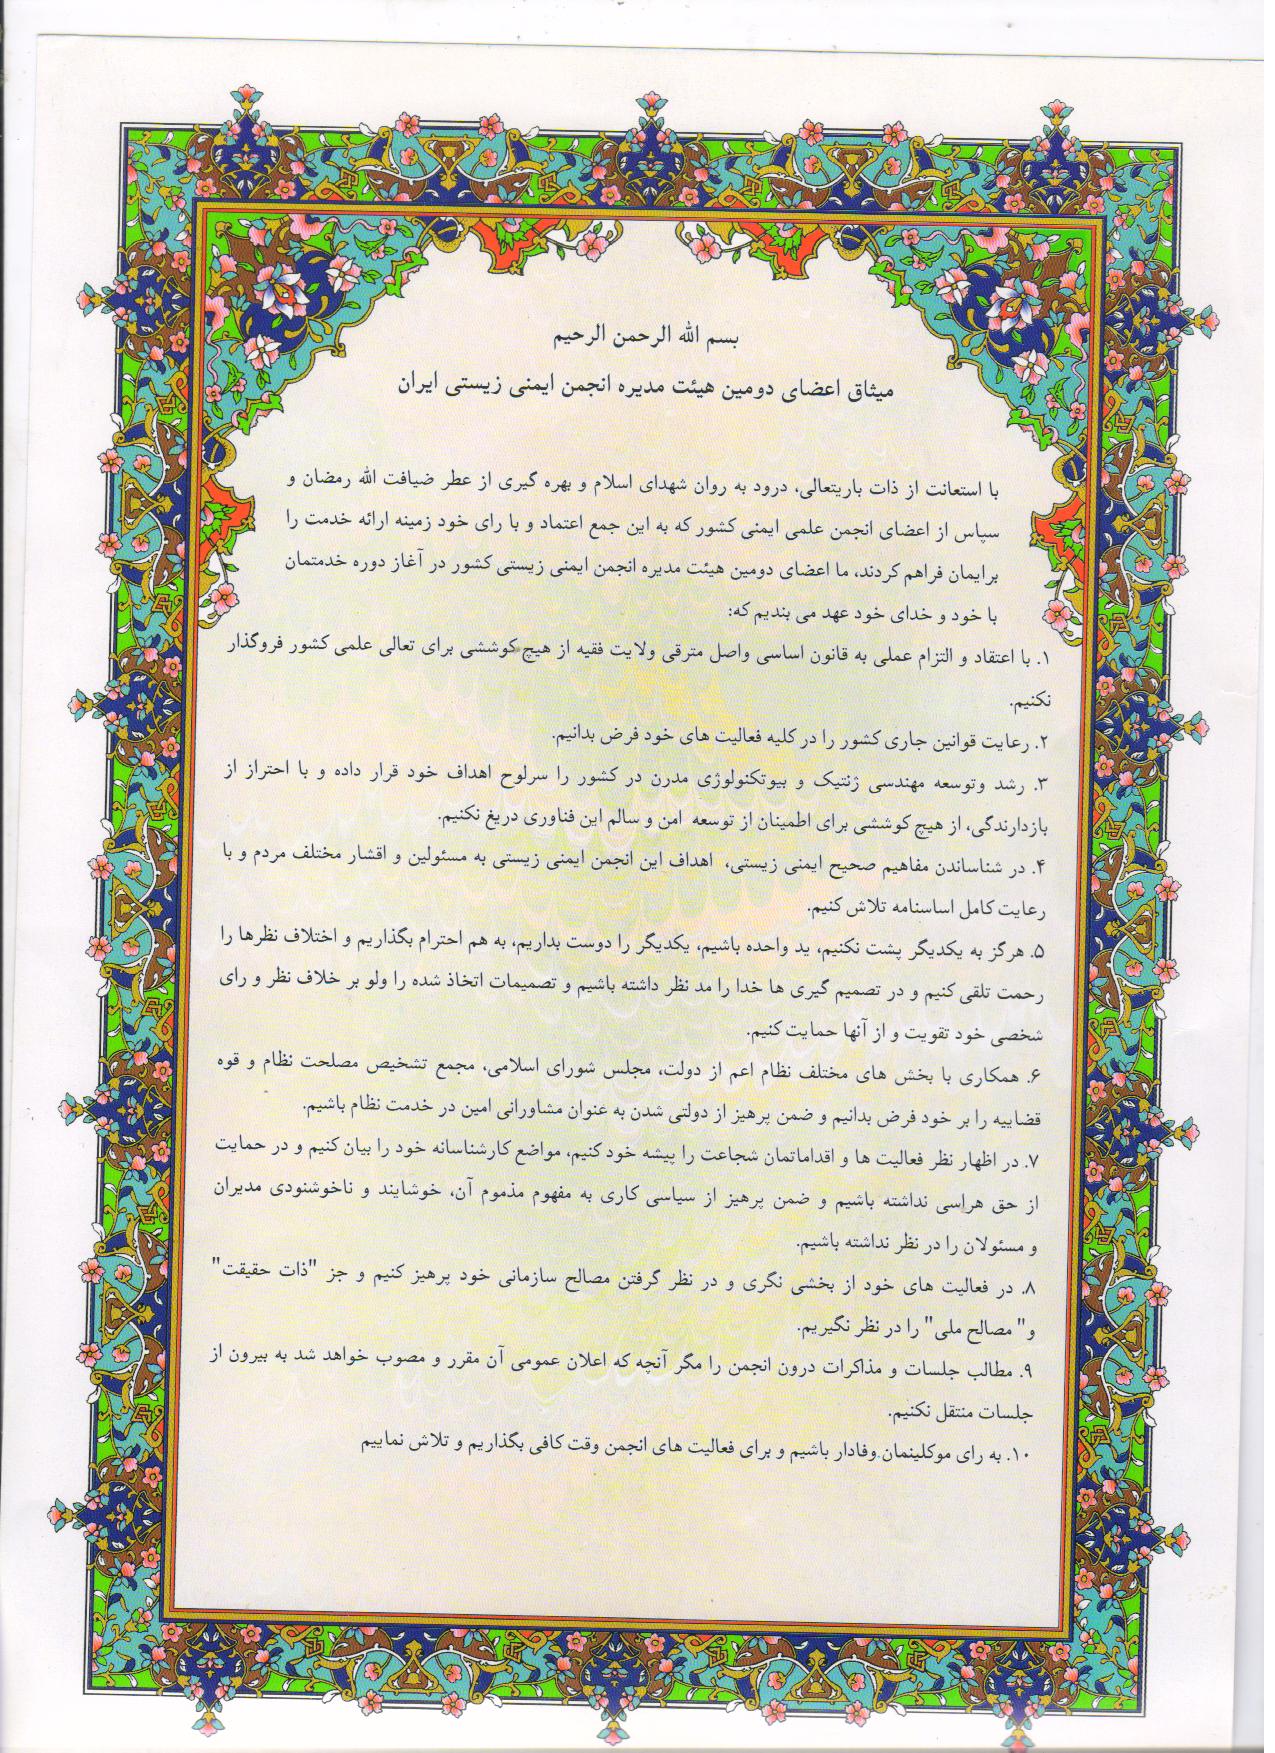 بسم الله الرحمن الرحیم
میثاق اعضای دومین هیئت مدیره انجمن ایمنی زیستی ایران
با استعانت از ذات باریتعالی، درود به روان شهدای اسلام و بهره گیری از عطر ضیافت الله رمضان و
سپاس از اعضای انجمن علمی ایمنی کشور که به این جمع اعتماد و با رای خود زمینه ارائه خدمت را
برایمان فراهم کردند، ما اعضای دومین هیئت مدیره انجمن ایمنی زیستی کشور در آغاز دوره خدمتمان
با خود و خدای خود عهد می بندیم که:
۱. با اعتقاد و التزام عملی به قانون اساسی واصل مترقی ولایت فقیه از هیچ کوششی برای تعالی علمی کشور فروگذار
نکنیم.
۲. رعایت قوانین جاری کشور را در کلیه فعالیت های خود فرض بدانیم.
۳. رشد وتوسعه مهندسی ژنتیک و بیوتکنولوژی مدرن در کشور را سرلوح اهداف خود قرار داده و با احتراز از
بازدارندگی، از هیچ کوششی برای اطمینان از توسعه امن و سالم این فناوری دریغ نکنیم.
۴. در شناساندن مفاهیم صحیح ایمنی زیستی، اهداف این انجمن ایمنی زیستی به مسئولین و اقشار مختلف مردم و با
رعایت کامل اساسنامه تلاش کنیم.
۵. هرگز به یکدیگر پشت نکنیم، ید واحده باشیم، یکدیگر را دوست بداریم، به هم احترام بگذاریم و اختلاف نظرها را
رحمت تلقی کنیم و در تصمیم گیری ها خدا را مد نظر داشته باشیم و تصمیمات اتخاذ شده را ولو بر خلاف نظر و رای
شخصی خود تقویت و از آنها حمایت کنیم.
۶. همکاری با بخش های مختلف نظام اعم از دولت، مجلس شورای اسلامی، مجمع تشخیص مصلحت نظام و قوه
قضاییه را بر خود فرض بدانیم و ضمن پرهیز از دولتی شدن به عنوان مشاورانی امین در خدمت نظام باشیم.
۷. در اظهار نظر فعالیت ها و اقداماتمان شجاعت را پیشه خود کنیم، مواضع کارشناسانه خود را بیان کنیم و در حمایت
از حق هراسی نداشته باشیم و ضمن پرهیز از سیاسی کاری به مفهوم مذموم آن، خوشایند و ناخوشنودی مدیران
و مسئولان را در نظر نداشته باشیم.
۸. در فعالیت های خود از بخشی نگری و در نظر گرفتن مصالح سازمانی خود پرهیز کنیم و جز "ذات حقیقت"
و" مصالح ملی" را در نظر نگیریم.
۹. مطالب جلسات و مذاکرات درون انجمن را مگر آنچه که اعلان عمومی آن مقرر و مصوب خواهد شد به بیرون از
جلسات منتقل نکنیم.
۱۰. به رای موکلینمان وفادار باشیم و برای فعالیت های انجمن وقت کافی بگذاریم و تلاش نماییم